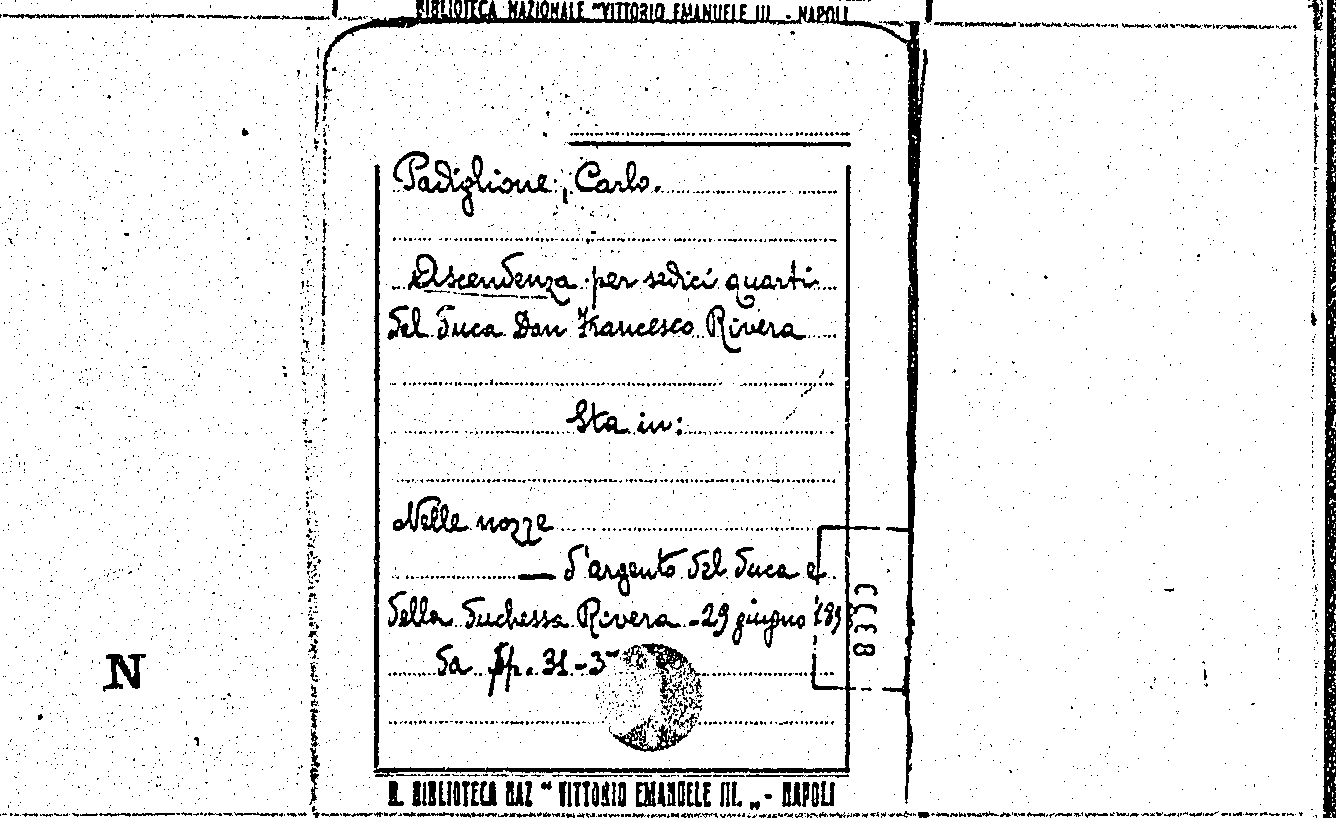 BIBLIOTECA NAZIONALE "VITTORIO EMANUELE III. - NAPOLI
Padiglione, Carlo.
Ascendenza per sedici quarti
del Duca Don Francesco Rivera
Sta in:
Nelle nozze
— d'argento del Duca e
della Duchessa Rivera - 29 giugno 189
Da pp. 31-3
N
R. BIBLIOTECA NAZ " VITTORIO EMANUELE III. „ - NAPOLI